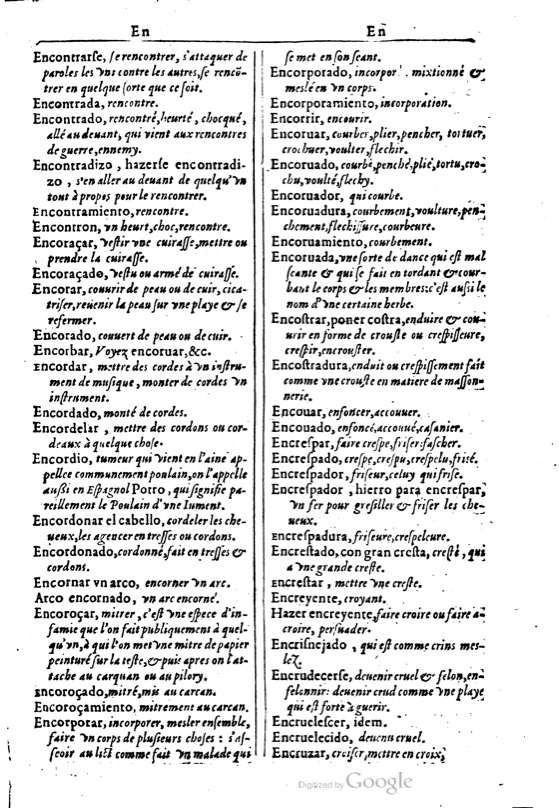 En
En
Encontrarse, se rencontrer, s'attaquer de
paroles les vns contre les autres, se rencõ-
trer en quelque sorte que ce soit.
Encontrada, rencontre.
Encontrado, rencontré, heurté, choqué,
allé au deuant, qui vient aux rencontres
de guerre, ennemy.
Encontradizo, hazerse encontradi-
zo, s'en aller au deuant de quelqu'vn
tout à propos pour le rencontrer.
Encontramiento, rencontre.
Encontron, vn heurt, choc, rencontre.
Encoraçar, vestir vne cuirasse, mettre ou
prendre la cuirasse.
Encoraçado, vestu ou armé de cuirasse.
Encorar, couurir de peau ou de cuir, cica-
triser, reuenir la peau sur vne playe & se
refermer.
Encorado, couuert de peau ou de cuir.
Encorbar, Voyez encoruar, &c.
Encordar, mettre des cordes à vn instru-
ment de musique, monter de cordes vn
instrument.
Encordado, monté de cordes.
Encordelar, mettre des cordons ou cor-
deaux à quelque chose.
Encordio, tumeur qui vient en l'aine ap-
pellee communement poulain, on l'appelle
aussi en Espagnol Potro, qui signifie pa-
reillement le Poulain d'vne Iument.
Encordonar el cabello, cordeler les che-
ueux, les agencer en tresses ou cordons.
Encordonado, cordonné, fait en tresses &
cordons.
Encornar vn arco, encorner vn arc.
Arco encornado, vn arc encorné.
Encoroçar, mitrer, c'est vne espece d'in-
famie que l'on fait publiquement à quel-
qu'vn, à qui l'on met vne mitre de papier
peinturé sur la teste, & puis apres on l'at-
tache au carquan ou au pilory.
Encoroçado, mitré, mis au carcan.
Encoroçamiento, mitrement au carcan.
Encorporar, incorporer, mesler ensemble,
faire vn corps de plusieurs choses : s'as-
seoir au lict comme fait vn malade qui
se met en son seant.
Encorporado, incorporé, mixtionné &
meslé en vn corps.
Encorporamiento, incorporation.
Encorrir, encourir.
Encoruar, courber, plier, pencher, tortuer,
crochuer, voulter, flechir.
Encoruado, courbé, penché, plié, tortu, cro-
chu, voulté, flechy.
Encoruador, qui courbe.
Encoruadura, courbement, voulture, pen-
chement, flechissure, courbeure.
Encoruamiento, courbement.
Encoruada, vne sorte de dance qui est mal
seante & qui se fait en tordant & cour-
bant le corps & les membres: c'est aussi le
nom d'vne certaine herbe.
Encostrar, poner costra, enduire & cou-
urir en forme de crouste ou crespissure,
crespir, encrouster.
Encostradura, enduit ou crespissement fait
comme vne crouste en matiere de masson-
nerie.
Encouar, enfoncer, accouuer.
Encouado, enfoncé, accoué, casanier.
Encrespar, faire crespe, friser: fascher.
Encrespado, crespe, crespu, crespelu, frisé.
Encrespador, friseur, celuy qui frise.
Encrespador, hierro para encrespar,
vn fer pour gresiller & friser les che-
ueux.
Encrespadura, friseure, crespeleure.
Encrestado, con gran cresta, cresté, qui
a vne grande creste.
Encrestar, mettre vne creste.
Encreyente, croyant.
Hazer encreyente, faire croire ou faire à-
croire, persuader.
Encrisnejado, qui est comme crins mes-
lez.
Encrudecerse, deuenir cruel & felon, en-
felonnir: deuenir crud comme vne playe
qui est forte à guerir.
Encruelescer, idem.
Encruelecido, deuenu cruel.
Encruzar, croiser, mettre en croix,
Digitized by Google